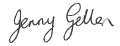 Jenny Geller